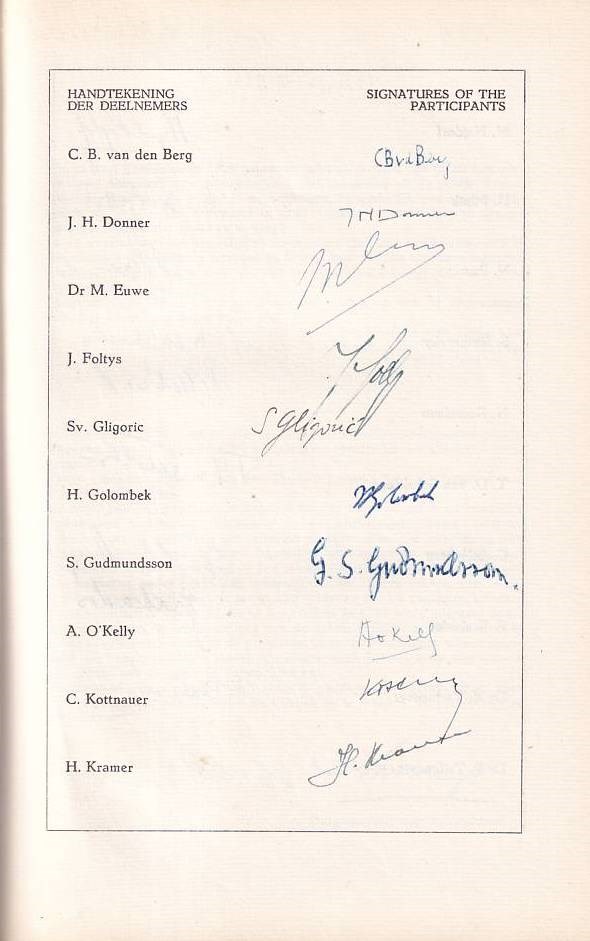 HANDTEKENING
DER DEELNEMERS
SIGNATURES OF THE
PARTICIPANTS
C. B. van den Berg
CBvdBerg
J. H. Donner
JHDonner
Dr M. Euwe
J. Foltys
Sv. Gligoric
SGligorić
H. Golombek
S. Gudmundsson
G. S. Gudmundsson.
A. O'Kelly
AOKelly
C. Kottnauer
H. Kramer
H. Kramer